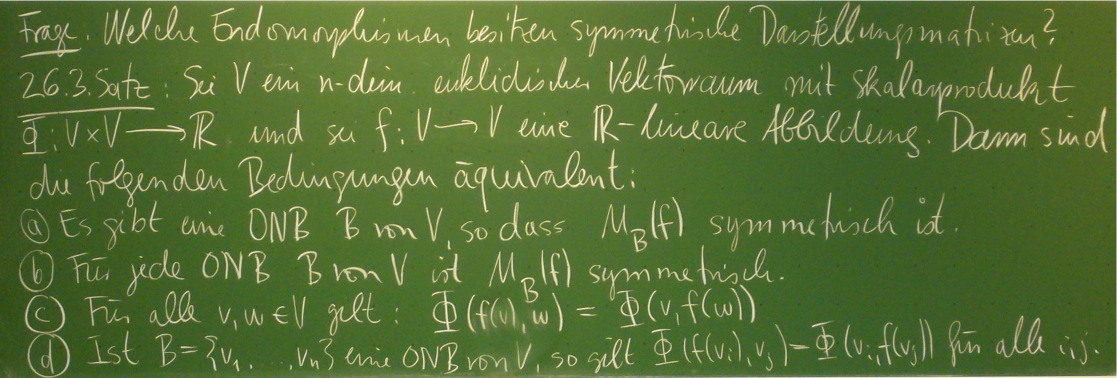 Frage. Welche Endomorphismen besitzen symmetrische Darstellungsmatrizen?
26.3. Satz: Sei V ein n-dim. euklidischer Vektorraum mit Skalarprodukt
Φ: V×V → ℝ und sei f: V → V eine ℝ-lineare Abbildung. Dann sind
die folgenden Bedingungen äquivalent:
(a) Es gibt eine ONB B von V, so dass M_B(f) symmetrisch ist.
(b) Für jede ONB B von V ist M_B(f) symmetrisch.
(c) Für alle v, w ∈ V gilt: Φ(f(v), w) = Φ(v, f(w))
(d) Ist B = {v₁, ..., vₙ} eine ONB von V, so gilt Φ(f(vᵢ), vⱼ) = Φ(vᵢ, f(vⱼ)) für alle i, j.